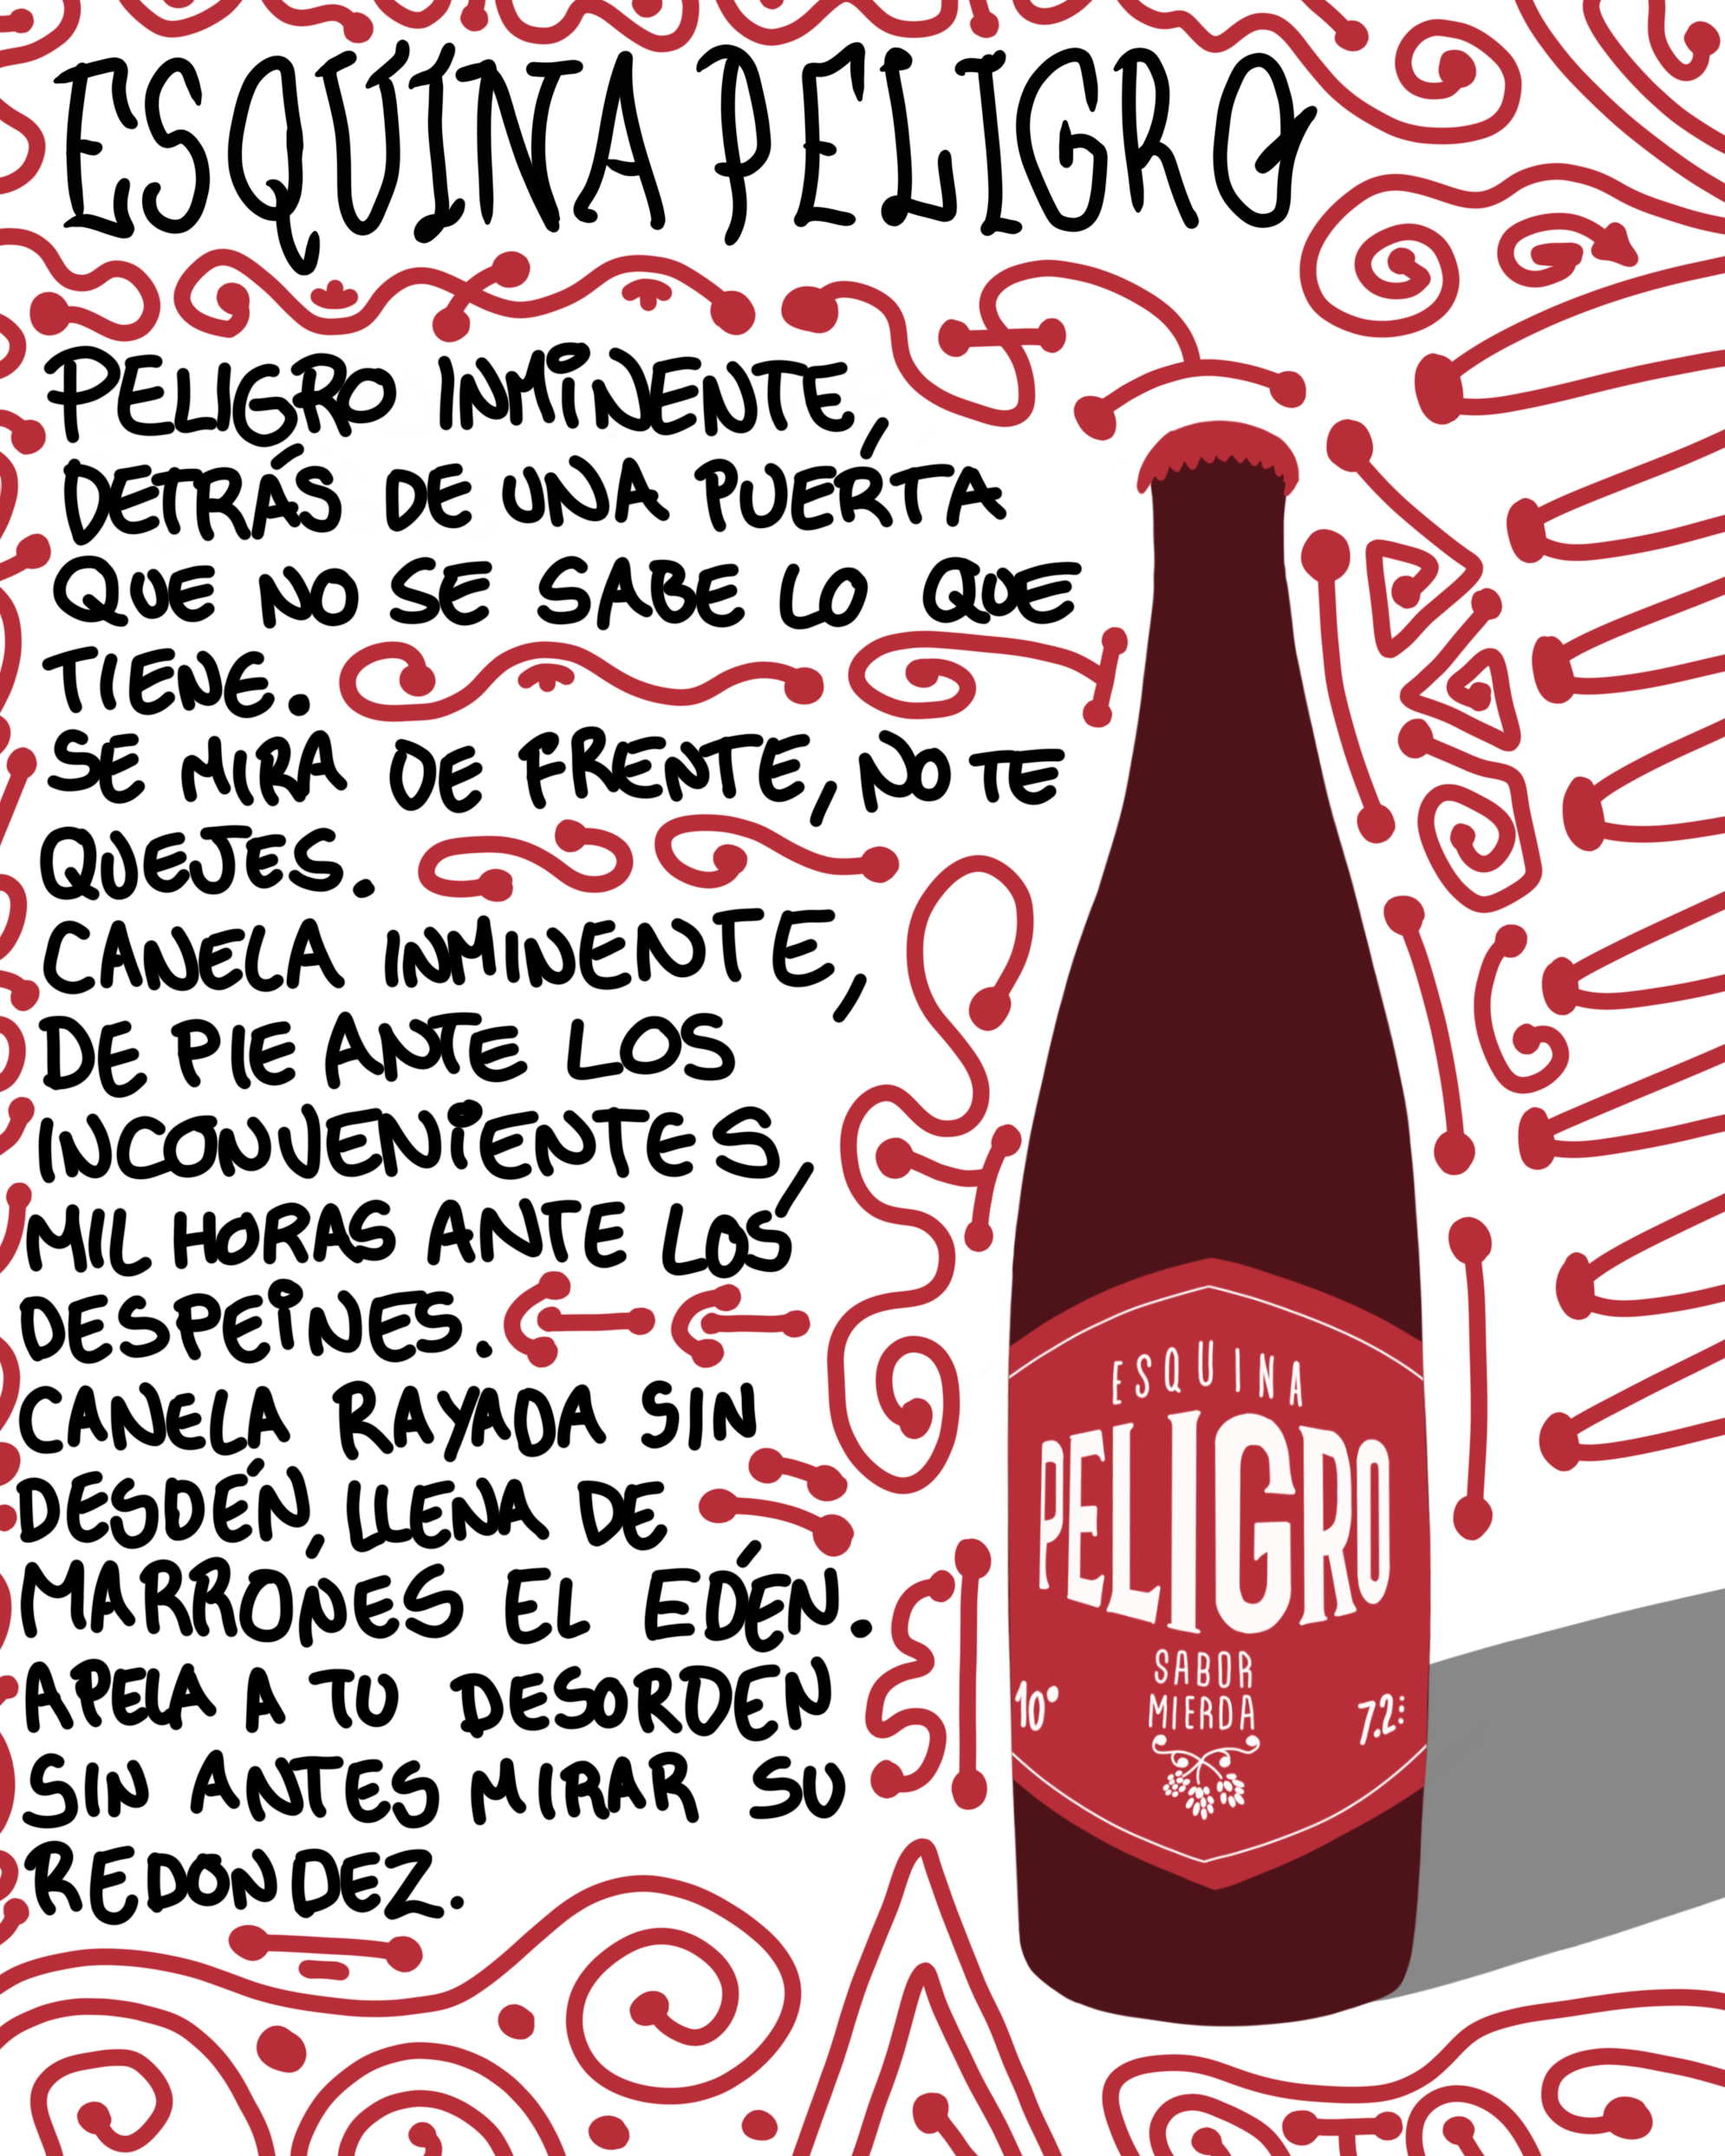 ESQUINA PELIGRO
PELIGRO INMINENTE,
DETRÁS DE UNA PUERTA
QUE NO SE SABE LO QUE
TIENE.
SE MIRA DE FRENTE, NO TE
QUEJES.
CANELA INMINENTE,
DE PIE ANTE LOS
INCONVENIENTES,
MIL HORAS ANTE LOS
DESPEINES.
CANELA RAYADA SIN
DESDÉN, LLENA DE
MARRONES EL EDÉN.
APELA A TU DESORDEN
SIN ANTES MIRAR SU
REDONDEZ.
ESQUINA
PELIGRO
SABOR
MIERDA
10°
7.2: